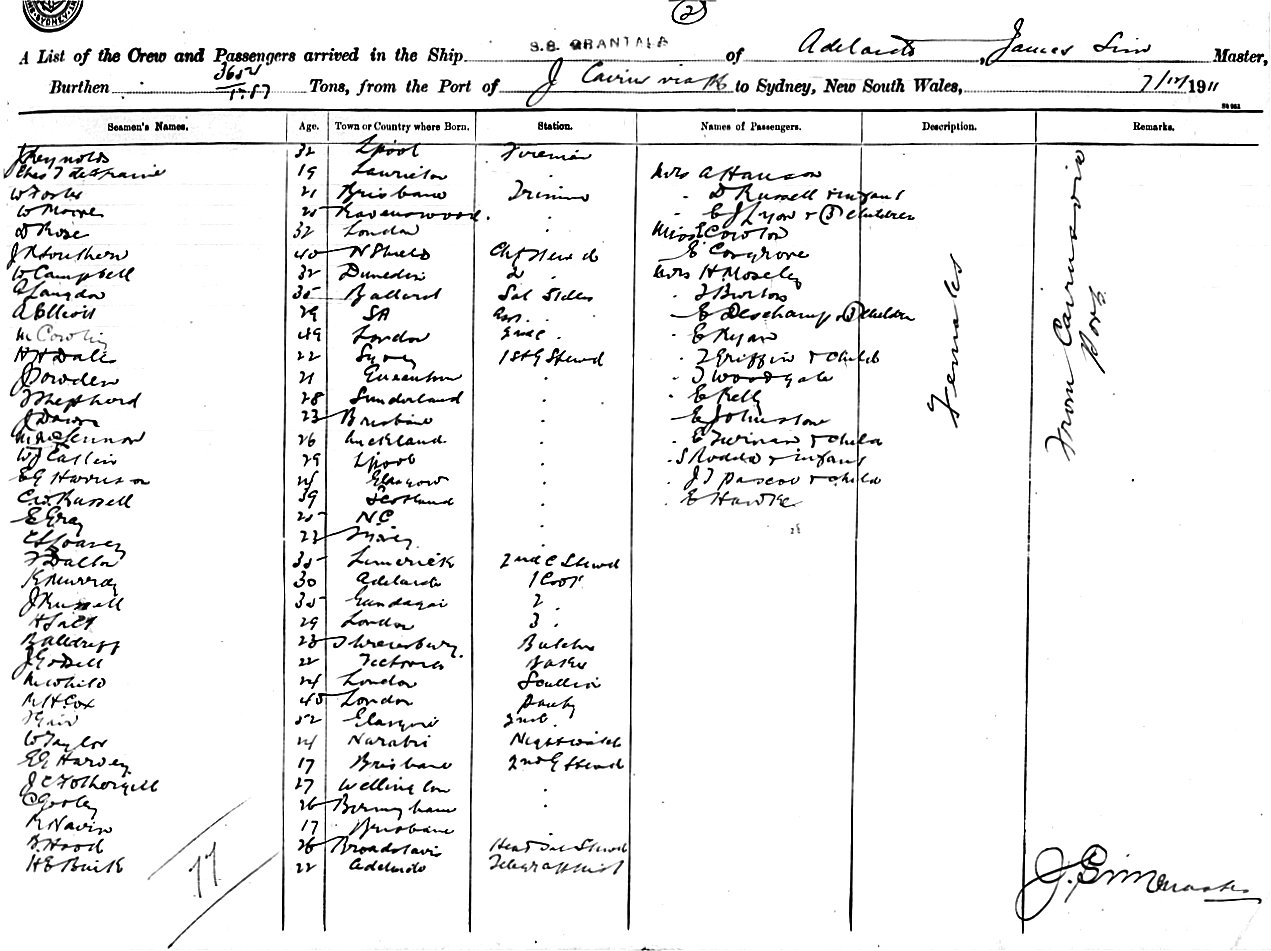 SYDNEY
2
A List of the Crew and Passengers arrived in the Ship S.S. GRANTALA of Adelaide, James Sim Master,
Burthen 3652 Tons, from the Port of via to Sydney, New South Wales, 7/12/1911
Seamen's Names. Age. Town or Country where Born. Station. Names of Passengers. Description. Remarks.
J Reynolds 32 Lpool Fireman
Chas 19 Laurieton " Mrs A Hanson
W 21 Brisbane Trimmer " D Russell & infant
W Moore 25 Ravenswood " " E J Lyon & 3 children
D Rose 32 London " Miss E Cowton
J R Southern 40 N Shields Chf Stewd " E Cosgrove
W Campbell 32 Dunedin 2 " Mrs H Moseley
Langdon 35 Ballarat " J Burton
A Elliott 29 SA " E Deschamp & 3 children
M Cowlin 49 London " E Ryan
H H Dale 22 Sydney 1st G Stewd " J Griffin & child
J Dowden 21 " " J Woodgate
Shepherd 28 Sunderland " " E Kelly
J Dawn 23 Brisbane " " E Johnstone
26 Auckland " " E & child
W J 29 Lpool " " S Rodda & infant
E G Harrison 24 Glasgow " " J T Pascoe & child
C W Russell 39 Scotland " " E Hawke
E Gray 25 N.C "
22 Sydney "
F Dalton 35 Limerick 2nd C Stewd
K Murray 30 Adelaide 1 Cook
J Russell 35 Gundagai 2 "
H Salt 29 London 3 "
23 Shrewsbury Butcher
J 22 Victoria Baker
M White 24 London Scullion
R H Cox 45 London Pantry
52 Glasgow 2nd "
W Taylor 24 Narabri Nightwatch
E G Harvey 17 Brisbane 2nd G Stewd
J C Fothergill 27 Wellington "
C 26 Birmingham "
R Navin 17 Brisbane "
B Hood 26 Head Stewd
H E Buik 22 Adelaide Telegraphist
Females
From Cairns via Ports
77
J. Sim Master